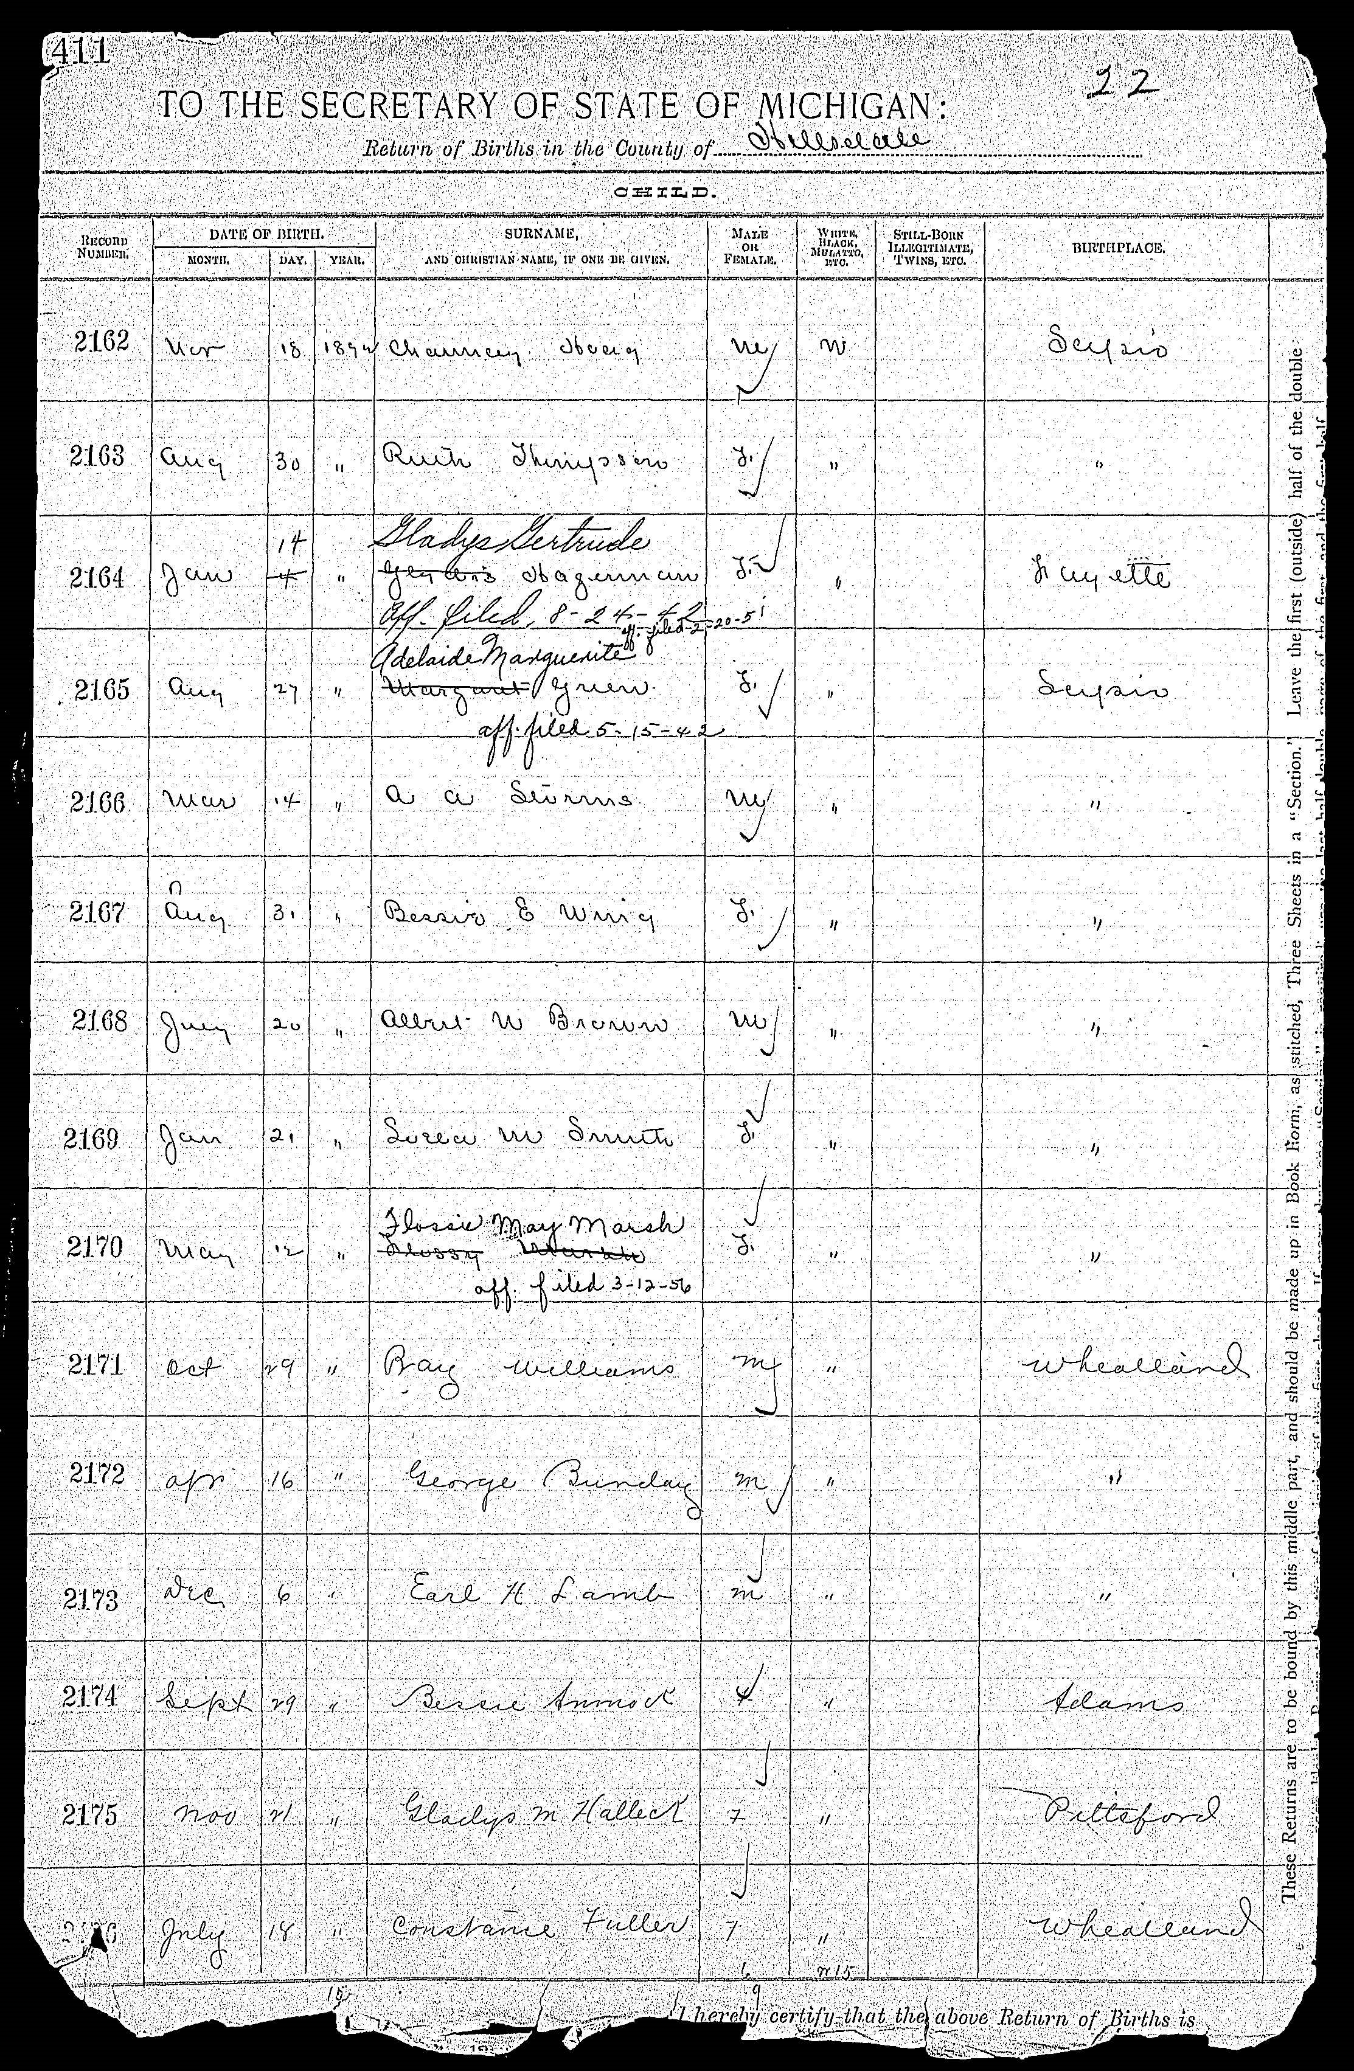 411
22
TO THE SECRETARY OF STATE OF MICHIGAN:
Return of Births in the County of Hillsdale
CHILD.
RECORD NUMBER. DATE OF BIRTH. MONTH. DAY. YEAR. SURNAME, AND CHRISTIAN NAME, IF ONE BE GIVEN. MALE OR FEMALE. WHITE, BLACK, MULATTO, ETC. STILL-BORN ILLEGITIMATE, TWINS, ETC. BIRTHPLACE.
2162 Nov 18 1894 Chauncey Hoag M W Scipio
2163 Aug 30 " Ruth Thompson F. " "
14 Gladys Gertrude
2164 Jan 4 " Hagerman F. " Fayette
Aff. filed, 8-24-42
aff. filed 2-20-51
Adelaide Marguerite
2165 Aug 27 " Margaret Green F. " Scipio
aff. filed 5-15-42
2166 Mar 14 " A A Sturms M " "
2167 Aug 31 " Bessie E Wing F. " "
2168 July 20 " Albert W Brown M " "
2169 Jan 21 " M Smith F. " "
Flossie May Marsh
2170 May 12 " Flossy Marsh F. " "
aff. filed 3-12-56
2171 Oct 29 " Ray Williams M " Wheatland
2172 Apr 16 " George Bunday M " "
2173 Dec 6 " Earl H Lamb M " "
2174 Sept 29 " Bessie F " Adams
2175 Nov 21 " Gladys M Halleck F " Pittsford
July 18 " Constance Fuller F " Wheatland
6 W 15
15 9
I hereby certify that the above Return of Births is
These Returns are to be bound by this middle part, and should be made up in Book Form, as stitched, Three Sheets in a "Section." Leave the first (outside) half of the double